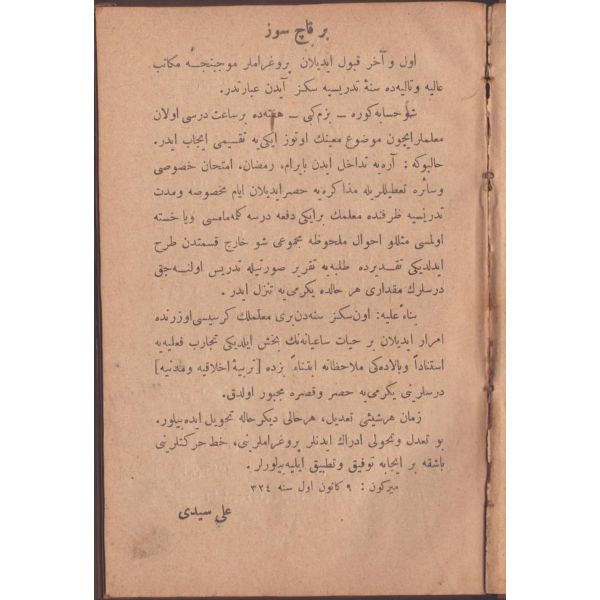 بر قاچ سوز
اول و آخر قبول ایدیلان پروغراملر موجبنجه مكاتب
عالیه و تالیه‌ده سنهٔ تدریسیه سكز آیدن عبارتدر.
شو حسابه كوره ــ بزم كبی ــ هفته‌ده بر ساعت درسی اولان
معلملر ایچون موضوع معینك اوتوز ایكی‌یه تقسیمی ایجاب ایدر.
حالبوكه : آره‌یه تداخل ایدن بایرام، رمضان، امتحان خصوصی
و سائره تعطیللریله مذاكره‌یه حصر ایدیلان ایام مخصوصه و مدت
تدریسیه ظرفنده معلمك برایكی دفعه درسه كله‌مامسی و یا خسته
اولمسی مثللو احوال ملحوظه مجموعی شو خارج قسمتدن طرح
ایدلدیكی تقدیرده طلبه‌یه تقریر صورتیله تدریس اولنه‌جق
درسلرك مقداری هر حالده یكرمی‌یه تنزل ایدر .
بناءً علیه: اون سكز سنه‌دن بری معلملك كرسیسی اوزرنده
امرار ایدیلان بر حیات ساعیانه‌نك بخش ایلدیكی تجارب فعلیه‌یه
استناداً و بالاده‌كی ملاحظاته ابتناءً بزده [تربیهٔ اخلاقیه و مدنیه]
درسلرینی یكرمی‌یه حصر و قصره مجبور اولدق.
زمان هر شیئی تعدیل، هر حالی دیكر حاله تحویل ایده‌بیلور.
بو تعدل و تحولی ادراك ایدنلر پروغراملرینی، خط حركتلرینی
باشقه بر ایجابه توفیق و تطبیق ایلیه‌بیلورلر .
میركون : ۹ كانون اول سنه ۳۲٤
علی سیدی